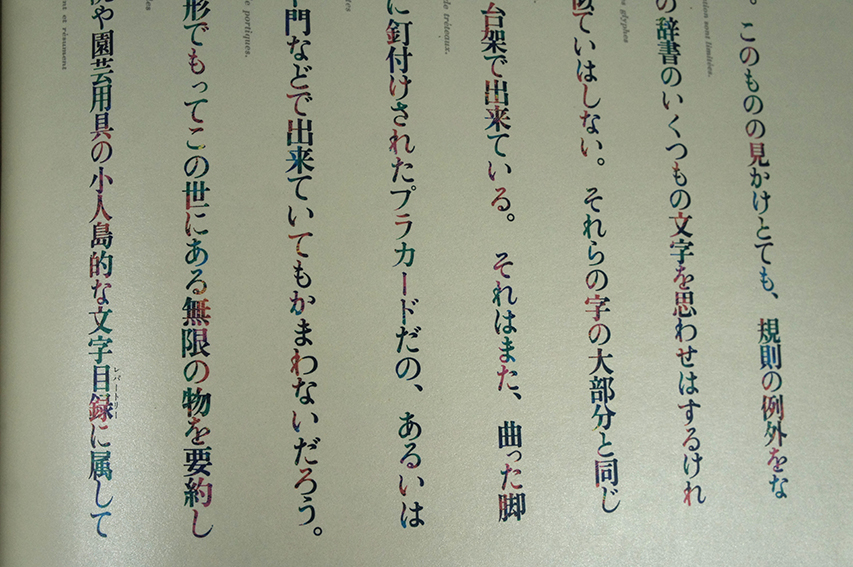 。このものの見かけとても、規則の例外をな
ption sont limitées.
の辞書のいくつもの文字を思わせはするけれ
s glyphes
似ていはしない。それらの字の大部分と同じ
台架で出来ている。それはまた、曲った脚
de tréteaux.
に釘付けされたプラカードだの、あるいは
門などで出来ていてもかまわないだろう。
e portiques.
形でもってこの世にある無限の物を要約し
や園芸用具の小人島的な文字目録に属して
レパートリー
nt et résument